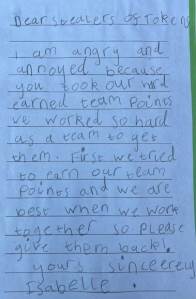 Dear stealers of Tokens
I am angry and
annoyed because
you took our hard
earned team points
we worked so hard
as a team to get
them. First we tried
to earn our team
points and we are
best when we work
together so please
give them back!.
yours sinceerely
Isabelle.